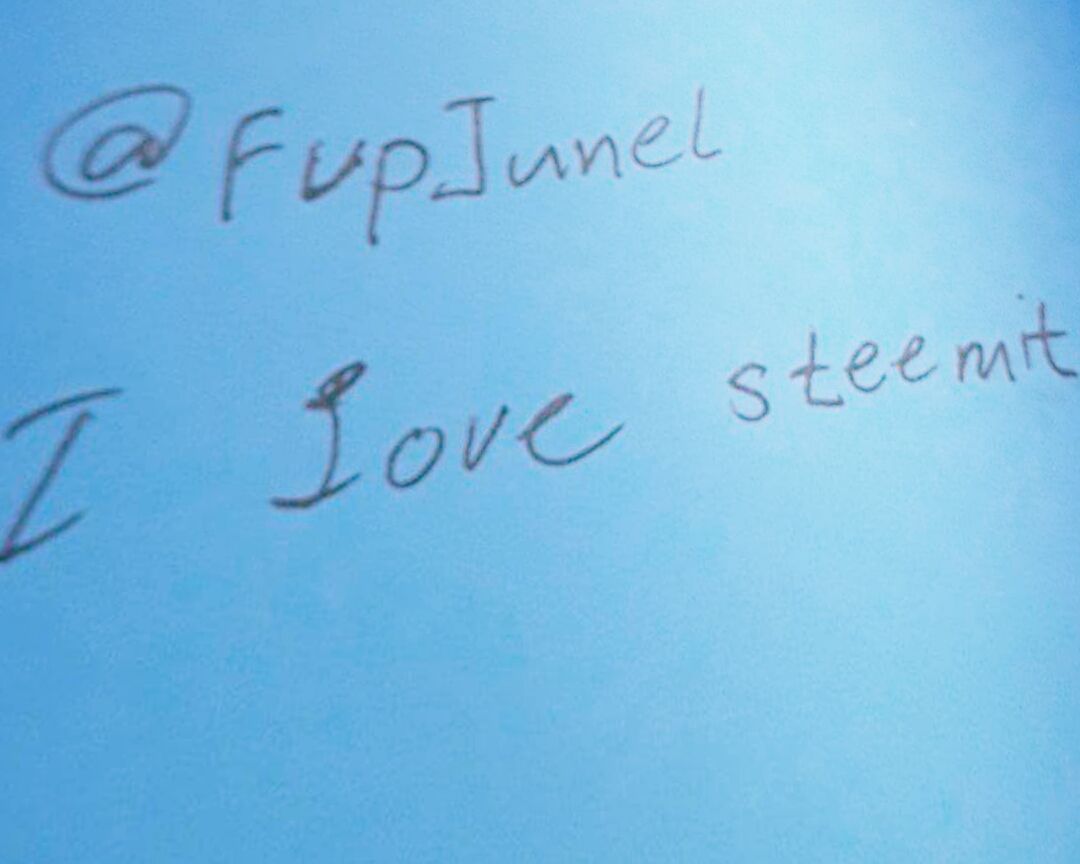 @FupJunel
I love steemit